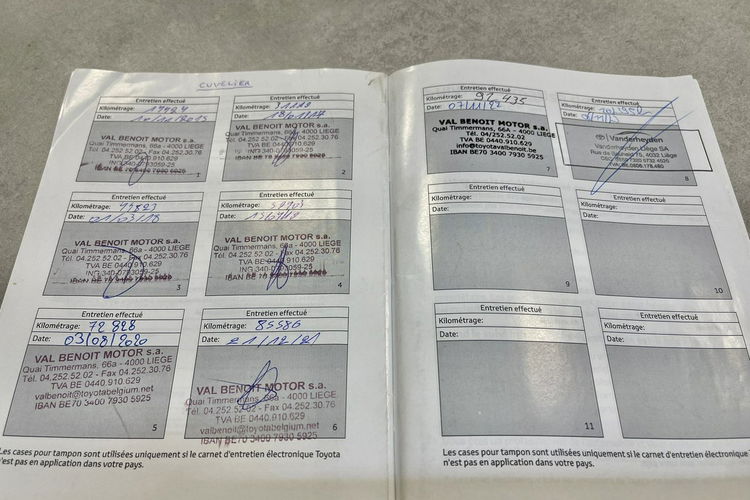 CUVELIER
Entretien effectué
Kilométrage:
Date:
VAL BENOIT MOTOR s.a.
Quai Timmermans, 66a - 4000 LIEGE
Tél. 04.252.52.02 - Fax 04.252.30.76
TVA BE 0440.910.629
ING 340-0793059-25
IBAN BE 70 3400 7930 5920
1
Entretien effectué
Kilométrage: 31118
Date:
VAL BENOIT MOTOR s.a.
Quai Timmermans, 66a - 4000 LIEGE
Tél. 04.252.52.02 - Fax 04.252.30.76
TVA BE 0440.910.629
ING 340-0793059-25
2
Entretien effectué
Kilométrage:
Date: 01/03/18
VAL BENOIT MOTOR s.a.
Quai Timmermans, 66a - 4000 LIEGE
Tél. 04.252.52.02 - Fax 04.252.30.76
TVA BE 0440.910.629
ING 340-0793059-25
3
Entretien effectué
Kilométrage:
Date:
VAL BENOIT MOTOR s.a.
Quai Timmermans, 66a - 4000 LIEGE
Tél. 04.252.52.02 - Fax 04.252.30.76
TVA BE 0440.910.629
ING 340-0793059-25
4
Entretien effectué
Kilométrage: 72 828
Date: 03/08/2020
VAL BENOIT MOTOR s.a.
Quai Timmermans, 66a - 4000 LIEGE
Tél. 04.252.52.02 - Fax 04.252.30.76
TVA BE 0440.910.629
valbenoit@toyotabelgium.net
IBAN BE70 3400 7930 5925
5
Entretien effectué
Kilométrage: 85586
Date: 21/12/21
VAL BENOIT MOTOR s.a.
Quai Timmermans, 66a - 4000 LIEGE
Tél. 04.252.52.02 - Fax 04.252.30.76
TVA BE 0440.910.629
valbenoit@toyotabelgium.net
IBAN BE70 3400 7930 5925
6
Les cases pour tampon sont utilisées uniquement si le carnet d'entretien électronique Toyota
n'est pas en application dans votre pays.
Entretien effectué
Kilométrage: 97 435
Date: 07/11/22
VAL BENOIT MOTOR s.a.
Quai Timmermans, 66a - 4000 LIEGE
Tél. 04/252.52.02
TVA BE 0440.910.629
info@toyotavalbenoit.be
IBAN BE70 3400 7930 5925
7
Entretien effectué
Kilométrage:
Date:
Vanderheyden
Vanderheyden Liège SA
4032 Liège
8
Entretien effectué
Kilométrage:
Date:
9
Entretien effectué
Kilométrage:
Date:
10
Entretien effectué
Kilométrage:
Date:
11
Entretien effectué
Kilométrage:
Date:
Les cases pour tampon sont utilisées uniquement si le carnet d'entretien électronique Toyota
n'est pas en application dans votre pays.